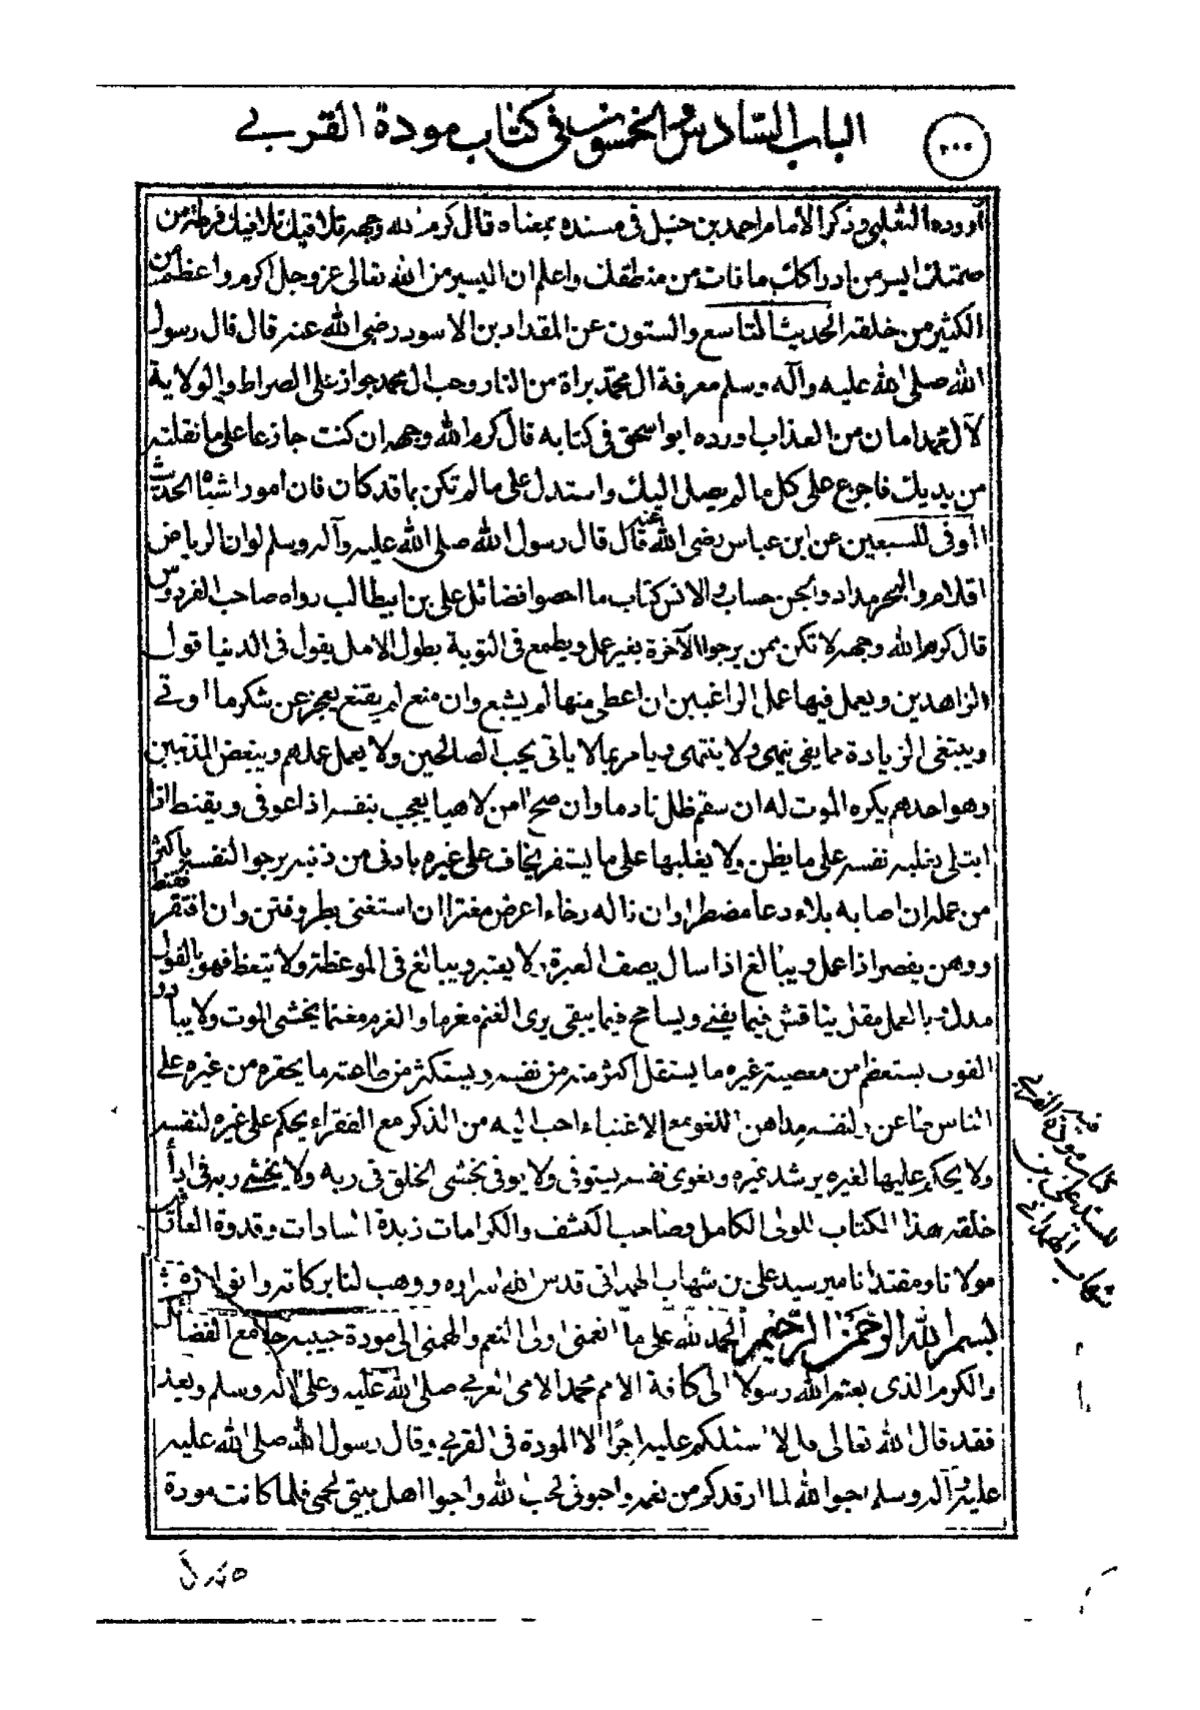 الباب السادس والخمسون فى كتاب مودة القربى
اورده الثعلبى وذكر الامام احمد بن حنبل فى مسنده بمعناه قال كرم الله وجهه تلافيك فرطت من
صمتك ايسر من ادراكك ما فات من منطقك واعلم ان اليسير من الله تعالى عز وجل اكرم واعظم من
الكثير من خلقه الحديث التاسع والستون عن المقداد بن الاسود رضى الله عنه قال قال رسول
الله صلى الله عليه وآله وسلم معرفة ال محمد براة من النار وحب ال محمد جواز على الصراط والولاية
لآل محمد امان من العذاب اورده ابو اسحق فى كتابه قال كرم الله وجهه ان كنت جازعا على ما تفلته
من يديك فاجزع على كل ما لم يصل اليك واستدل على ما لم تكن بما قد كان فان امورا اشباه الحديث
الوفى للسبعين عن ابن عباس رضى الله عنه قال قال رسول الله صلى الله عليه وآله وسلم لو ان الرياض
اقلام والبحر مداد والجن حساب والانس كتاب ما احصوا فضائل على بن ابيطالب رواه صاحب الفردوس
قال كرم الله وجهه لا تكن بمن يرجوا الآخرة بغير عمل ويطمع فى التوبة بطول الامل يقول فى الدنيا قول
الزاهدين ويعمل فيها عمل الراغبين ان اعطى منها لم يشبع وان منع لم يقنع يعجز عن شكر ما اوتى
ويبتغى الزيادة مما بقى ينهى ولا ينتهى ويامر بما لا ياتى يحب الصالحين ولا يعمل عملهم ويبغض المذنبين
وهو احدهم يكره الموت له ان سقم ظل نادما وان صح امن لاهيا يعجب بنفسه اذا عوفى ويقنط اذا
ابتلى يغلبه نفسه على ما يظن ولا يغلبها على ما يستقر يخاف على غيره بادنى من ذنبه يرجوا لنفسه باكثر
من عمله ان اصابه بلاء دعا مضطرا وان ناله رخاء اعرض مغترا ان استغنى بطر وفتن وان افتقر قنط
ووهن يقصر اذا عمل ويبالغ اذا سال يصف العبرة ولا يعتبر ويبالغ فى الموعظة ولا يتعظ فهو بالقول
مدل وبالعمل مقل ينافس فيما يفنى ويسامح فيما يبقى يرى الغنم مغرما والغرم مغنما يخشى الموت ولا يبادر
الفوت يستعظم من معصية غيره ما يستقل اكثر منه من نفسه ويستكثر من طاعته ما يحقره من غيره على
الناس طاعن ولنفسه مداهن اللغو مع الاغنياء احب اليه من الذكر مع الفقراء يحكم على غيره لنفسه
ولا يحكم عليها لغيره يرشد غيره ويغوى نفسه يستوفى ولا يوفى يخشى الخلق فى ربه ولا يخشى ربه فى
خلقه هذا الكتاب للولى الكامل وصاحب الكشف والكرامات زبدة السادات وقدوة العارفين
مولانا ومقتدانا مير سيد على بن شهاب الهمدانى قدس الله اسراره ووهب لنا بركاته وانواره
بسم الله الرحمن الرحيم الحمد لله على ما انعمنى اولى النعم والهمنى الى مودة حبيبه جامع الفضائل
والكرم الذى بعثه الله رسولا الى كافة الامم محمد الامى العربى صلى الله عليه وعلى آله وسلم وبعد
فقد قال الله تعالى قل لا اسئلكم عليه اجرًا الا المودة فى القربى وقال رسول الله صلى الله عليه
عليه وآله وسلم احبوا الله لما ارفدكم من نعمه واحبونى لحب الله واحبوا اهل بيتى لحبى فلما كانت مودة
كتاب مودة القربى
لسيد على بن
شهاب الهمدانى